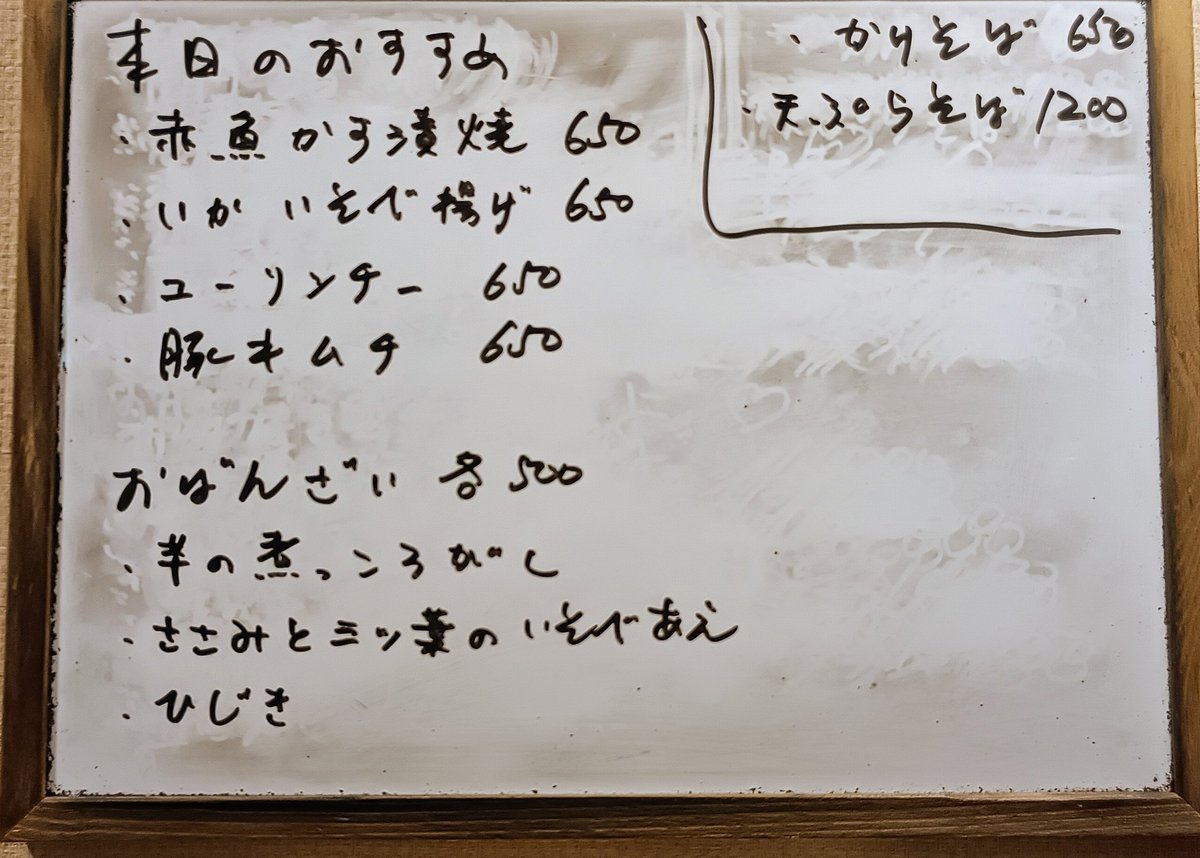 本日のおすすめ
・赤魚かす漬焼 650
・いか いそべ揚げ 650
・ユーリンチー 650
・豚キムチ 650
おばんざい 各500
・芋の煮っころがし
・ささみと三ツ葉のいそべあえ
・ひじき
・かけそば 650
・天ぷらそば 1200